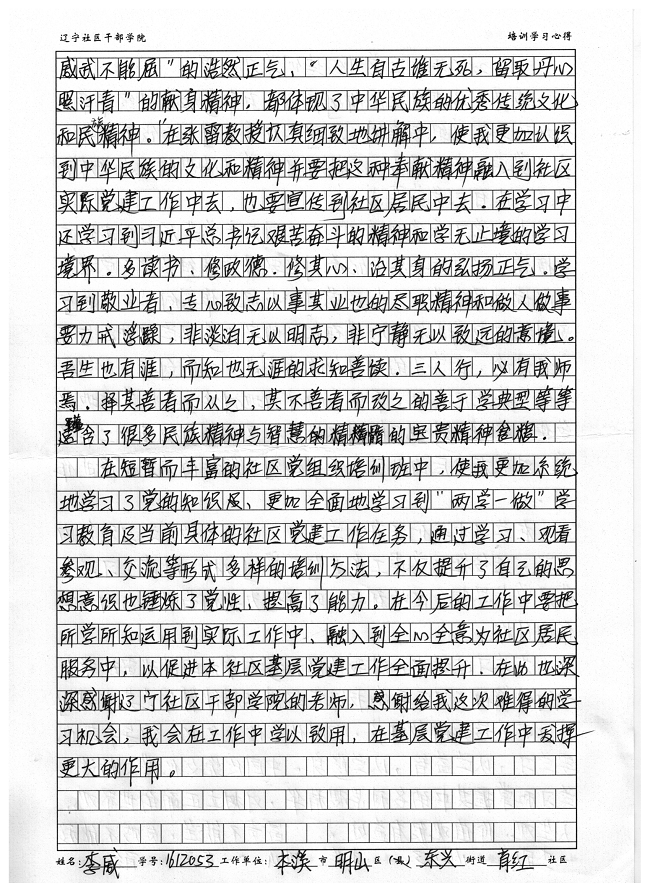 辽宁社区干部学院 培训学习心得
威武不能屈"的浩然正气、"人生自古谁无死,留取丹心
照汗青"的献身精神,都体现了中华民族的优秀传统文化
和民族精神。"在张雷教授认真细致地讲解中,使我更加认识
到中华民族的文化和精神并要把这种奉献精神融入到社区
实际党建工作中去,也要宣传到社区居民中去.在学习中
还学习到习近平总书记艰苦奋斗的精神和学无止境的学习
境界.多读书、修政德.修其心、治其身的弘扬正气.学
习到敬业者、专心致志以事其业也的尽职精神和做人做事
要力戒浮躁,非淡泊无以明志,非宁静无以致远的意境。
吾生也有涯,而知也无涯的求知善读.三人行,必有我师
焉.择其善者而从之,其不善者而改之的善于学典型等等
含了很多民族精神与智慧的精的宝贵精神食粮.
在短暂而丰富的社区党组织培训班中,使我更加系统
地学习了党的知识及、更加全面地学习到"两学一做"学
习教育及当前具体的社区党建工作任务,通过学习、观看
参观、交流等形式多样的培训方法,不仅提升了自己的思
想意识也锤炼了党性、提高了能力。在今后的工作中要把
所学所知运用到实际工作中、融入到全心全意为社区居民
服务中,以促进本社区基层党建工作全面提升.在此也深
深感谢辽宁社区干部学院的老师,感谢给我这次难得的学
习机会,我会在工作中学以致用,在基层党建工作中发挥
更大的作用。
姓名:李威 学号:1612053 工作单位:本溪 市 明山 区(县) 东兴 街道 育红 社区